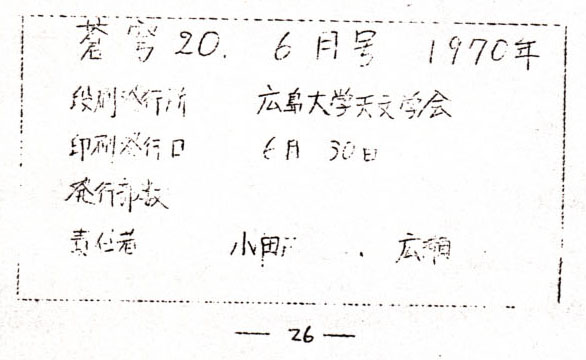 蒼穹 20. 6月号 1970年
印刷発行所 広島大学天文学会
印刷発行日 6月 30日
発行部数
責任者 小田 . 広瀬
— 26 —